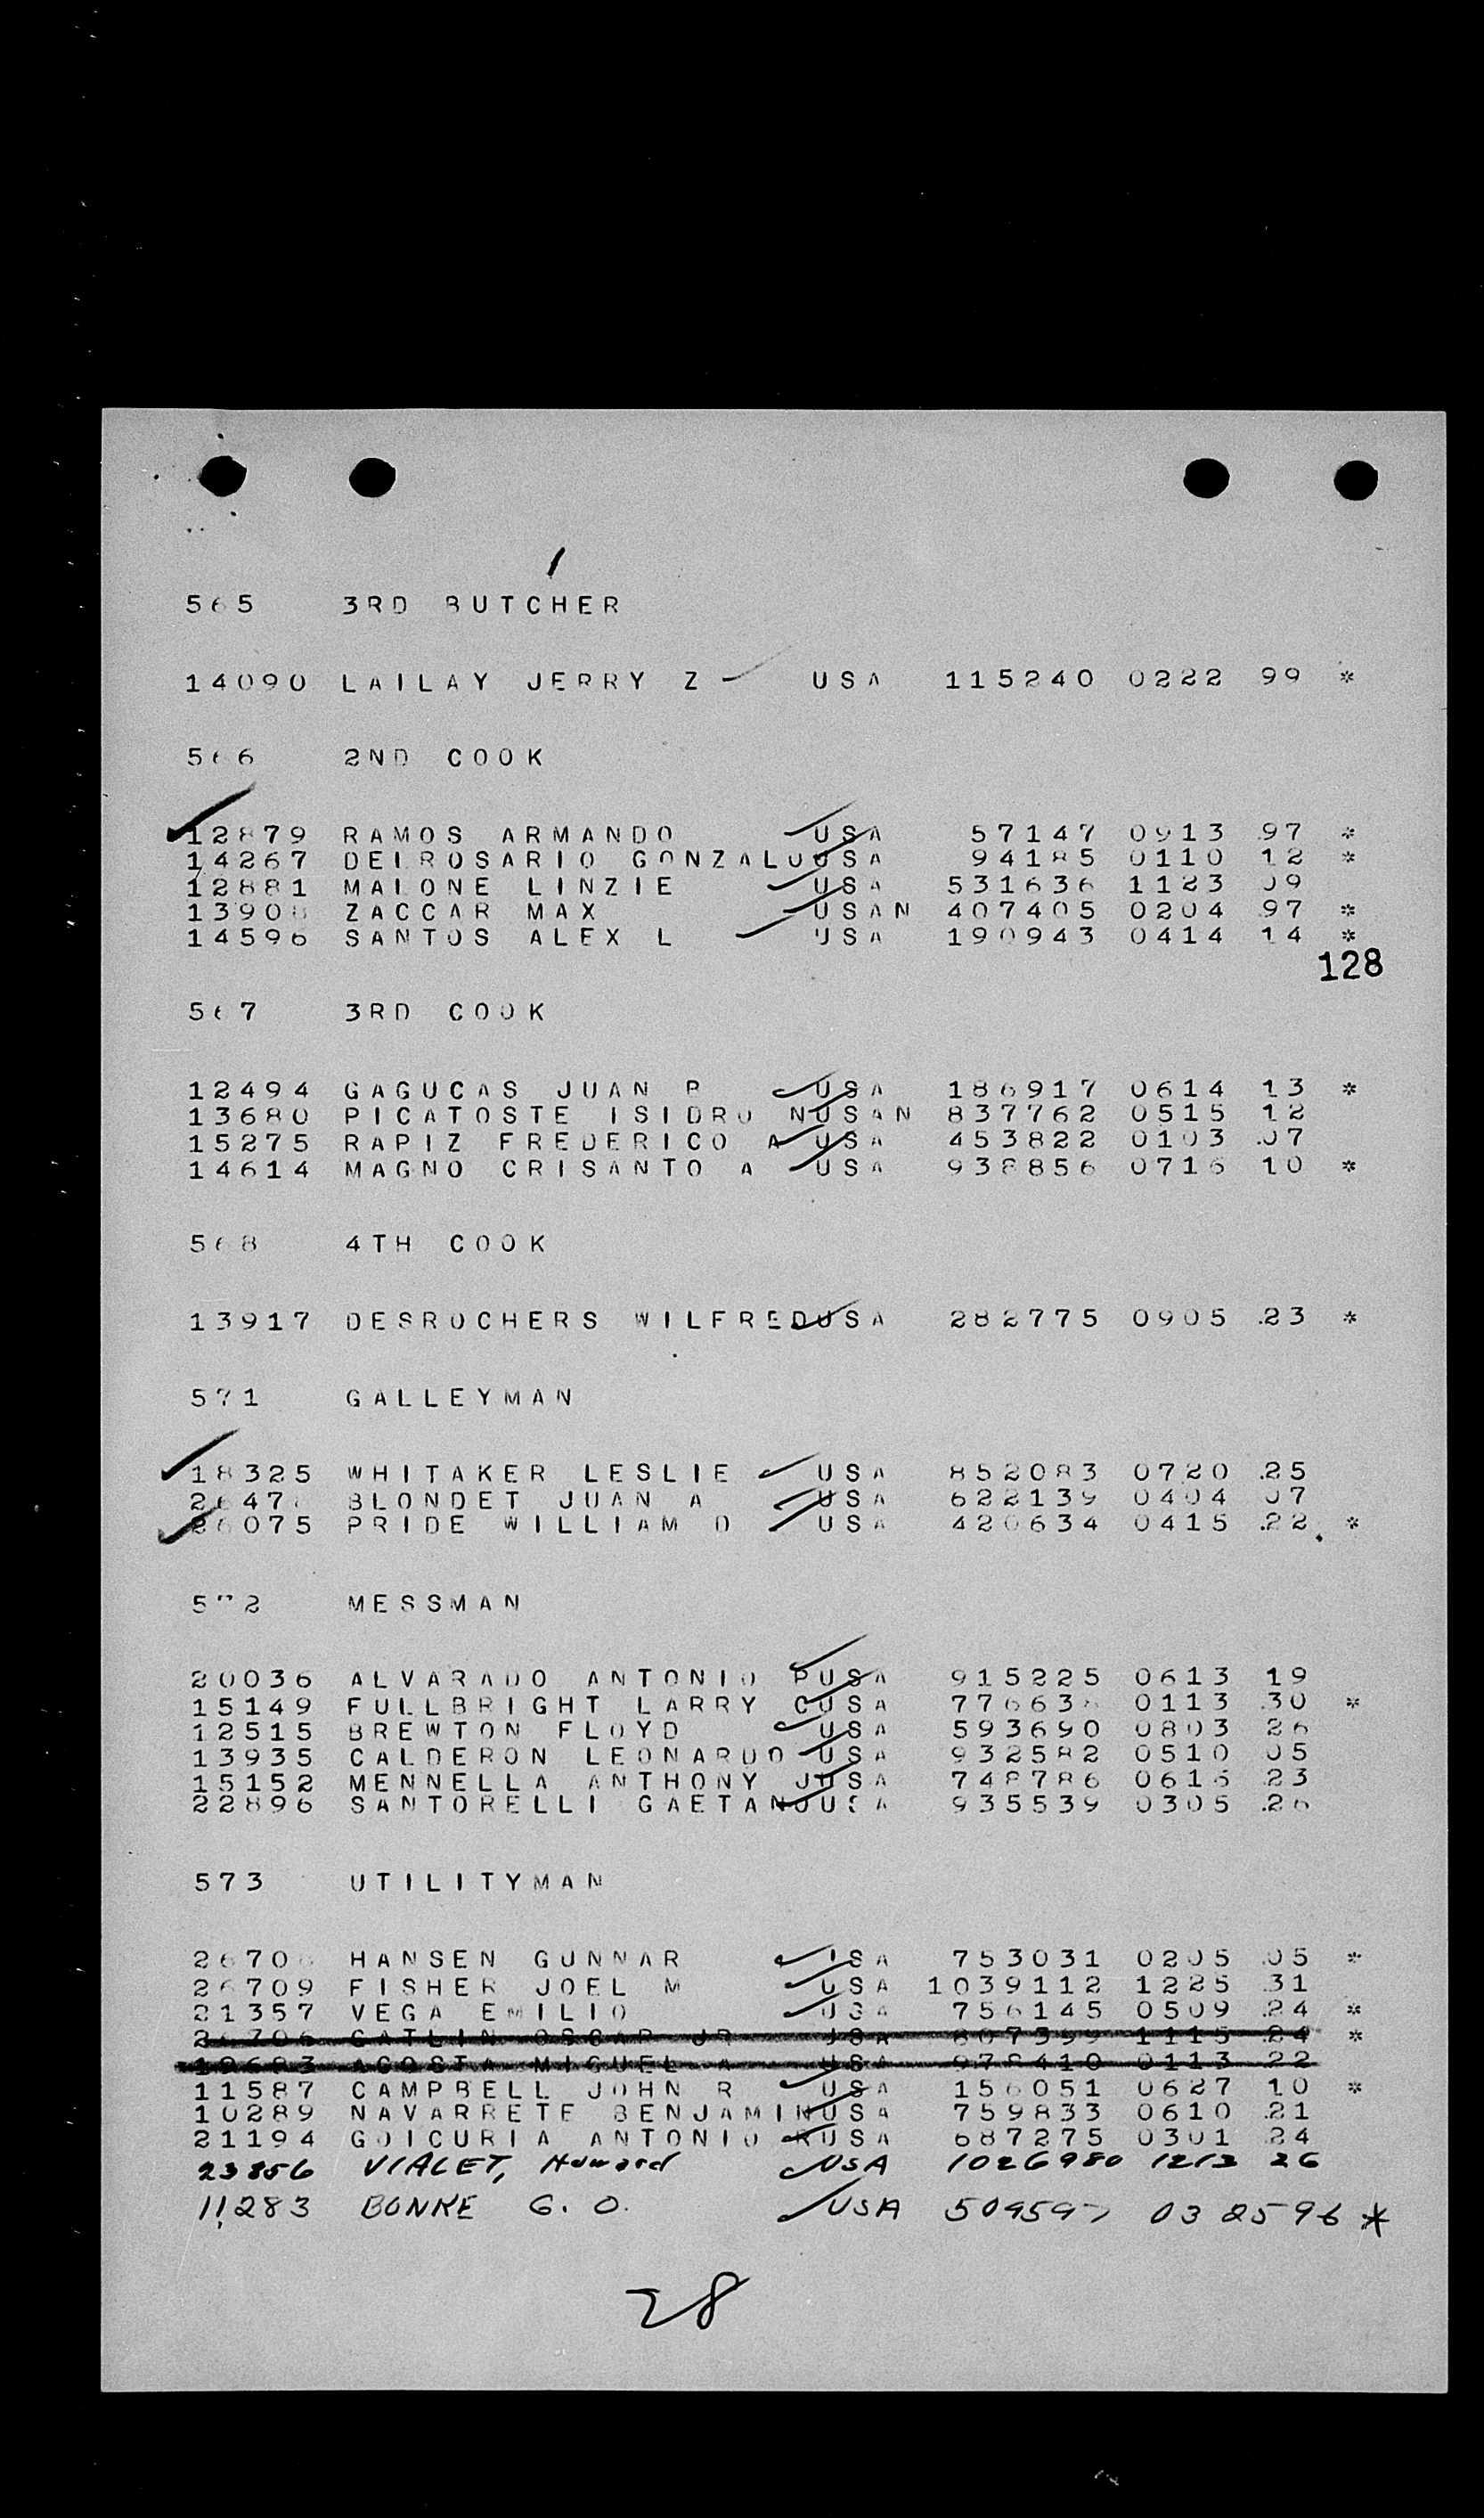 565 3RD BUTCHER
14090 LAILAY JERRY Z USA 115240 0222 99 *
566 2ND COOK
12879 RAMOS ARMANDO USA 57147 0913 97 *
14267 DELROSARIO GONZALO USA 94185 0110 12 *
12881 MALONE LINZIE USA 531636 1123 09
13908 ZACCAR MAX USAN 407405 0204 97 *
14596 SANTOS ALEX L USA 190943 0414 14 *
128
567 3RD COOK
12494 GAGUCAS JUAN P USA 186917 0614 13 *
13680 PICATOSTE ISIDRO NUSAN 837762 0515 12
15275 RAPIZ FREDERICO A USA 453822 0103 07
14614 MAGNO CRISANTO A USA 938856 0716 10 *
568 4TH COOK
13917 DESROCHERS WILFREDUSA 282775 0905 23 *
571 GALLEYMAN
18325 WHITAKER LESLIE USA 852083 0720 25
BLONDET JUAN A USA 622139 0404 07
26075 PRIDE WILLIAM D USA 420634 0415 22 *
572 MESSMAN
20036 ALVARADO ANTONIO PUSA 915225 0613 19
15149 FULLBRIGHT LARRY CUSA 776638 0113 30 *
12515 BREWTON FLOYD USA 593690 0803 26
13935 CALDERON LEONARDO USA 932582 0510 05
15152 MENNELLA ANTHONY JUSA 748786 0616 23
22896 SANTORELLI GAETANOUSA 935539 0305 26
573 UTILITYMAN
HANSEN GUNNAR USA 753031 0205 05 *
26709 FISHER JOEL M USA 1039112 1225 31
21357 VEGA EMILIO USA 756145 0509 24 *
26706 GATLIN OSCAR JR USA 807359 1115 24 *
ACOSTA MIGUEL A USA 978410 0113 22
11587 CAMPBELL JOHN R USA 156051 0627 10 *
10289 NAVARRETE BENJAMINUSA 759833 0610 21
21194 GOICURIA ANTONIO RUSA 687275 0301 24
23856 VIALET, Howard USA 1026980 1213 26
11283 BONKE G. O. USA 509597 03 25 96 *
28